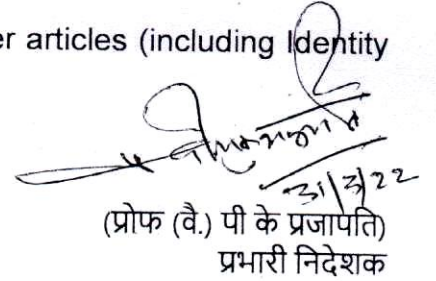 er articles (including Identity
31/3/22
(प्रोफ (वै.) पी के प्रजापति)
प्रभारी निदेशक